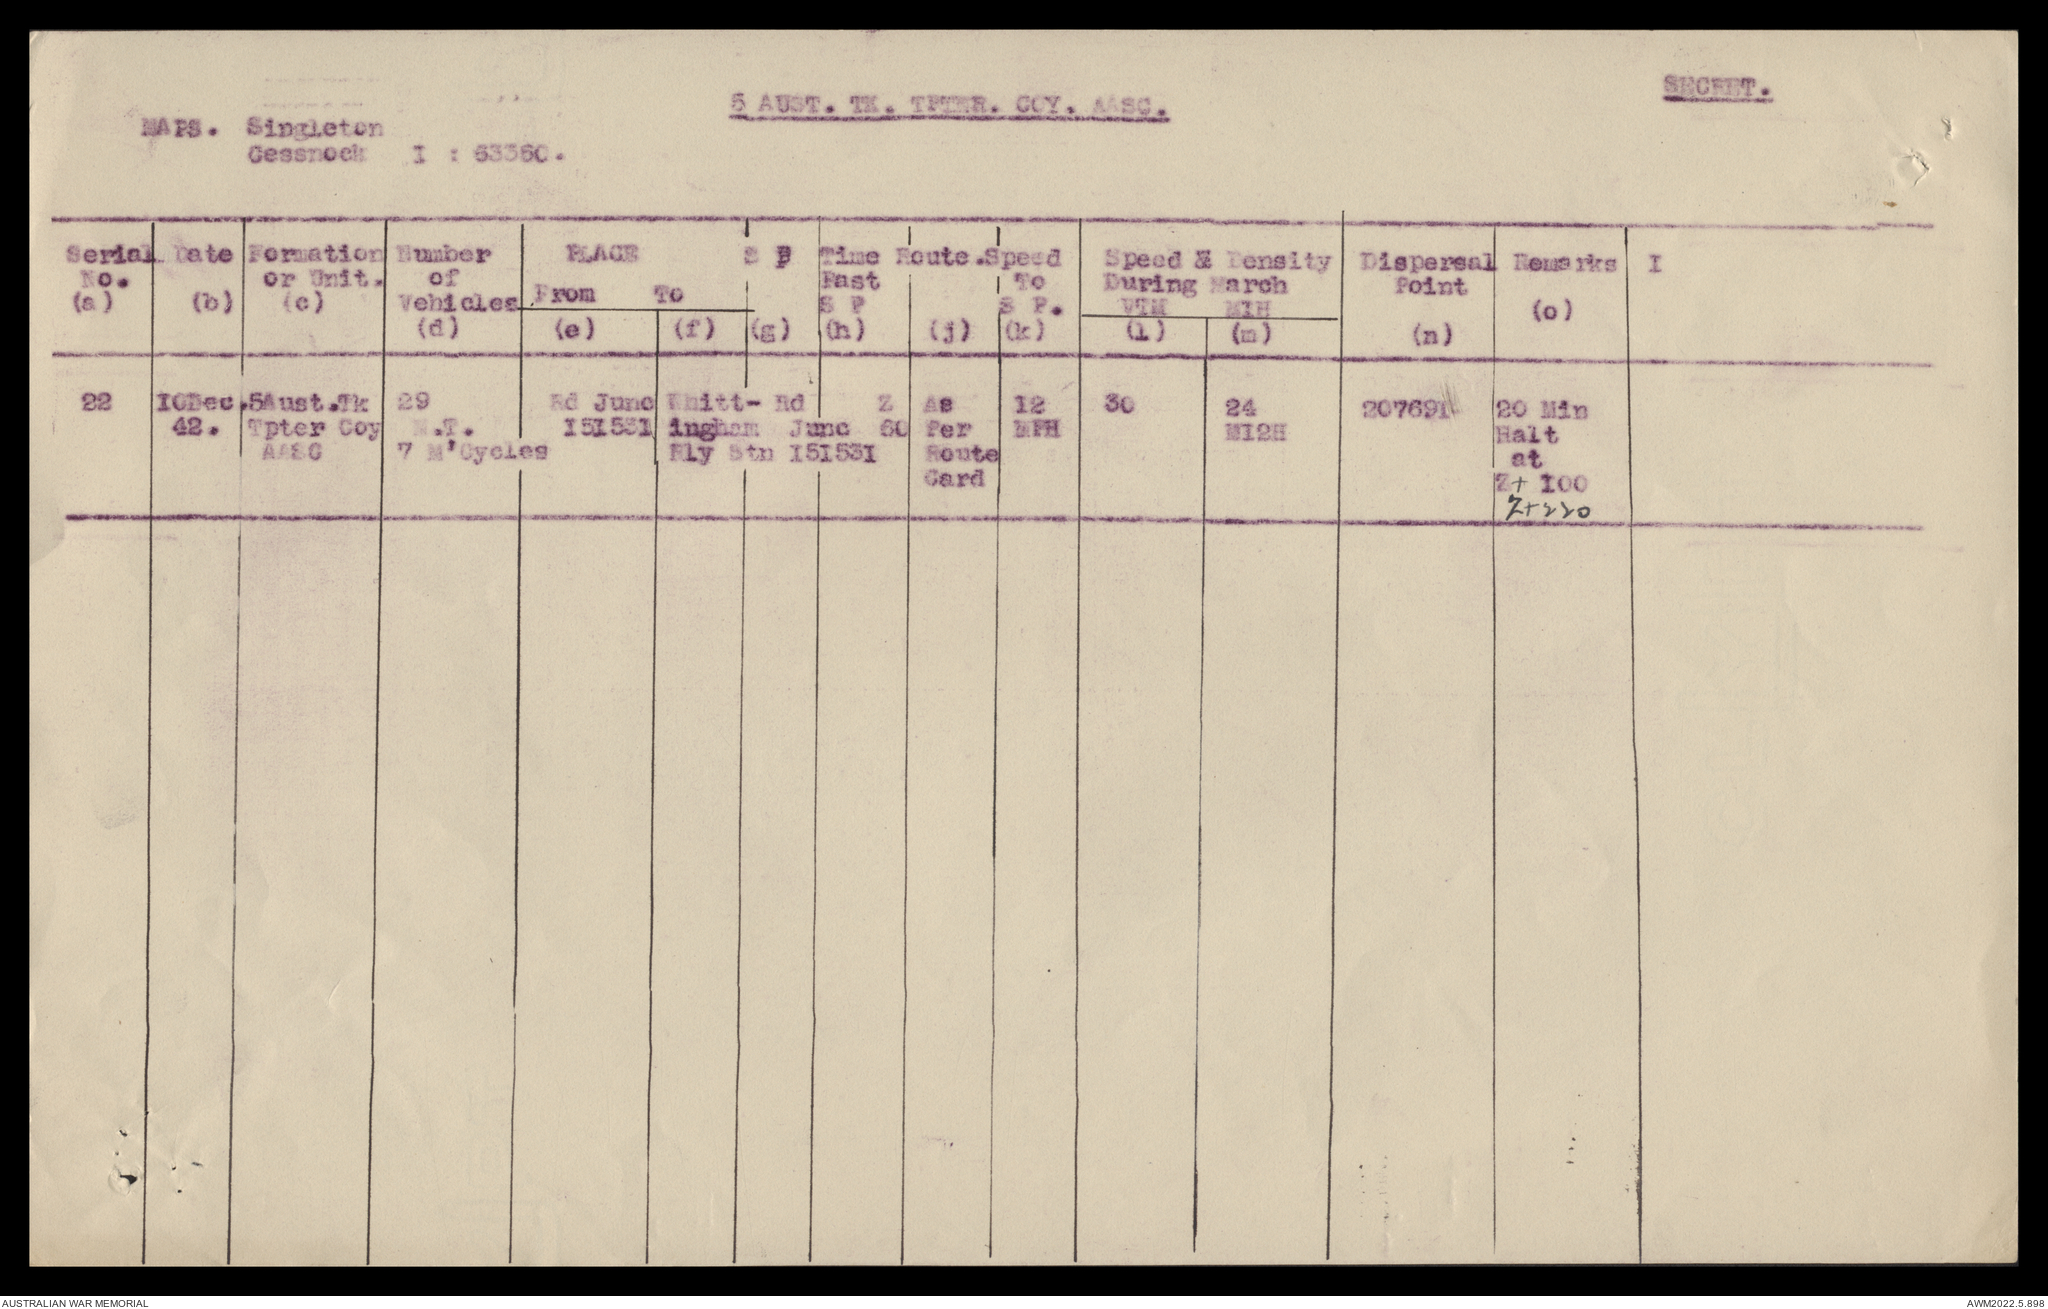 SECRET.
5 AUST. TK. TPTER. COY. AASC.
MAPS. Singleton
Cessnock I : 63360.
Serial Date Formation Number PLACE S P Time Route. Speed Speed & Density Dispersal Remarks I
No. or Unit. of Past To During March Point
From To
Vehicles S P S P. VTM MIH
(a) (b) (c) (d) (e) (f) (g) (h) (j) (k) (l) (m) (n) (o)
22 IODec. 5Aust.Tk 29 Rd Junc Whitt- Rd Z As I2 30 24 20769I 20 Min
42. Tpter Coy M.T. I5I53I ingham Junc 60 Per MPH MI2H Halt
AASC 7 M'Cycles Rly Stn I5I53I Route at
Card Z+ IOO
Z+220
AUSTRALIAN WAR MEMORIAL
AWM2022.5.898